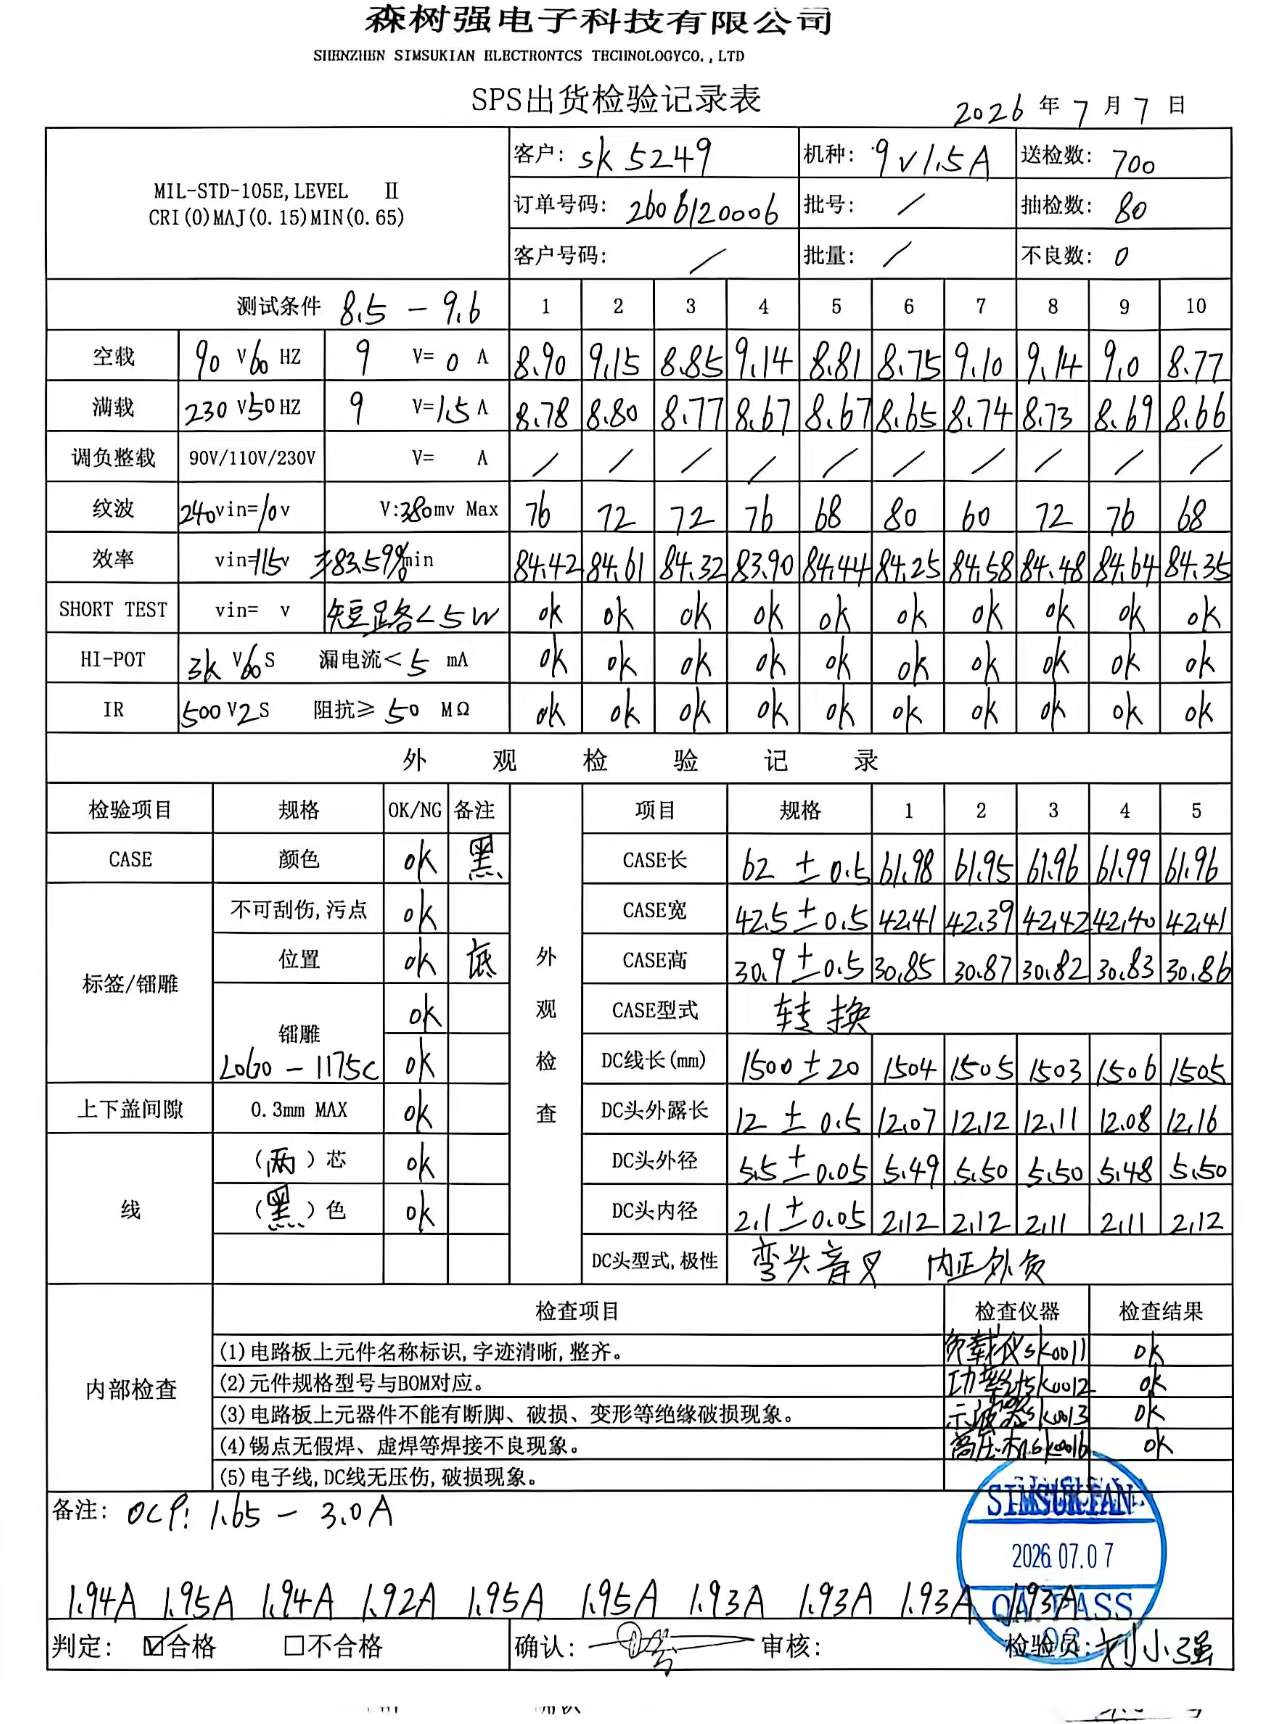 森树强电子科技有限公司
SHENZHEN SIMSUKIAN ELECTRONTCS TECHNOLOGYCO.,LTD
SPS出货检验记录表
2026 年 7 月 7 日
MIL-STD-105E, LEVEL Ⅱ
CRI(0)MAJ(0.15)MIN(0.65)
客户: sk5249 机种: 9V1.5A 送检数: 700
订单号码: 2606120006 批号: / 抽检数: 80
客户号码: / 批量: / 不良数: 0
测试条件 8.5 - 9.6 1 2 3 4 5 6 7 8 9 10
空载 90 V 60 HZ 9 V= 0 A 8.90 9.15 8.85 9.14 8.81 8.75 9.10 9.14 9.0 8.77
满载 230 V 50 HZ 9 V= 1.5 A 8.78 8.80 8.77 8.67 8.67 8.65 8.74 8.73 8.69 8.66
调负整载 90V/110V/230V V= A / / / / / / / / / /
纹波 240 vin= 10 v V: 380 mv Max 76 72 72 76 68 80 60 72 76 68
效率 vin= 115 v 83.59% min 84.42 84.61 84.32 83.90 84.44 84.25 84.58 84.48 84.64 84.35
SHORT TEST vin= v 短路<5W ok ok ok ok ok ok ok ok ok ok
HI-POT 3k V 60 S 漏电流< 5 mA ok ok ok ok ok ok ok ok ok ok
IR 500 V 2 S 阻抗≥ 50 MΩ ok ok ok ok ok ok ok ok ok ok
外观检验记录
检验项目 规格 OK/NG 备注 项目 规格 1 2 3 4 5
CASE 颜色 ok 黑 CASE长 62 ± 0.5 61.98 61.95 61.96 61.99 61.96
标签/镭雕 不可刮伤,污点 ok CASE宽 42.5 ± 0.5 42.41 42.39 42.42 42.40 42.41
位置 ok 底 外观检查 CASE高 30.9 ± 0.5 30.85 30.87 30.82 30.83 30.86
镭雕 ok CASE型式 转换
LOGO - 1175C ok DC线长(mm) 1500 ± 20 1504 1505 1503 1506 1505
上下盖间隙 0.3mm MAX ok DC头外露长 12 ± 0.5 12.07 12.12 12.11 12.08 12.16
线 (两)芯 ok DC头外径 5.5 ± 0.05 5.49 5.50 5.50 5.48 5.50
(黑)色 ok DC头内径 2.1 ± 0.05 2.12 2.12 2.11 2.11 2.12
DC头型式,极性 弯头音叉 内正外负
内部检查 检查项目 检查仪器 检查结果
(1)电路板上元件名称标识,字迹清晰,整齐。 负载仪sk0011 ok
(2)元件规格型号与BOM对应。 功率计sk0012 ok
(3)电路板上元器件不能有断脚、破损、变形等绝缘破损现象。 示波器sk0013 ok
(4)锡点无假焊、虚焊等焊接不良现象。 高压机sk0016 ok
(5)电子线,DC线无压伤,破损现象。
备注: OCP: 1.65 - 3.0A
SIMSUKIAN
2026.07.07
QA PASS
1.94A 1.95A 1.94A 1.92A 1.95A 1.95A 1.93A 1.93A 1.93A 1.93A
判定: ☑合格 □不合格 确认: 审核: 检验员: 刘小强